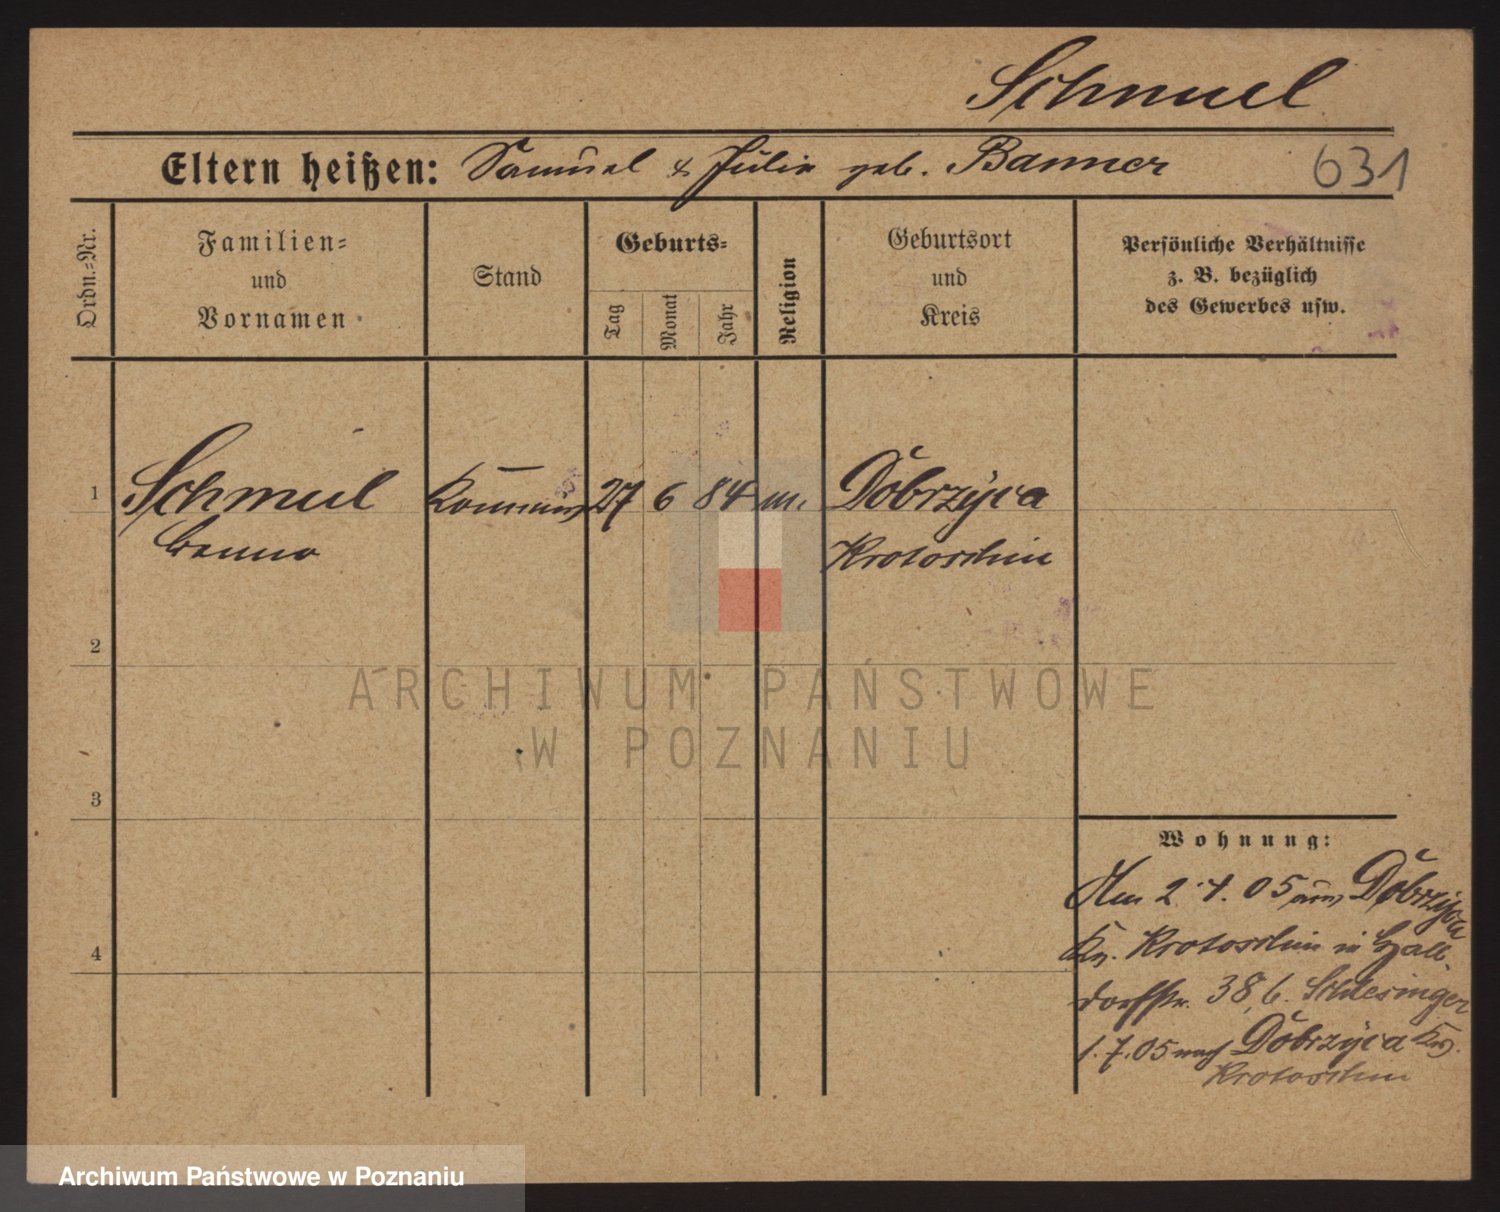 Schmul
Eltern heißen: Samuel & Julie geb. Banner
631
Ordn.=Nr.
Familien=
und
Vornamen
Stand
Geburts=
Tag
Monat
Jahr
Religion
Geburtsort
und
Kreis
Persönliche Verhältnisse
z. B. bezüglich
des Gewerbes usw.
1
Schmul
Benno
27 6 84 m.
Dobrzyca
Krotoschin
2
ARCHIWUM PAŃSTWOWE
W POZNANIU
3
Wohnung:
05 aus Dobrzyca
4
Kr. Krotoschin in Hall
dorfstr. 38, b. Schlesinger
1.7.05 nach Dobrzyca Kr.
Krotoschin
Archiwum Państwowe w Poznaniu